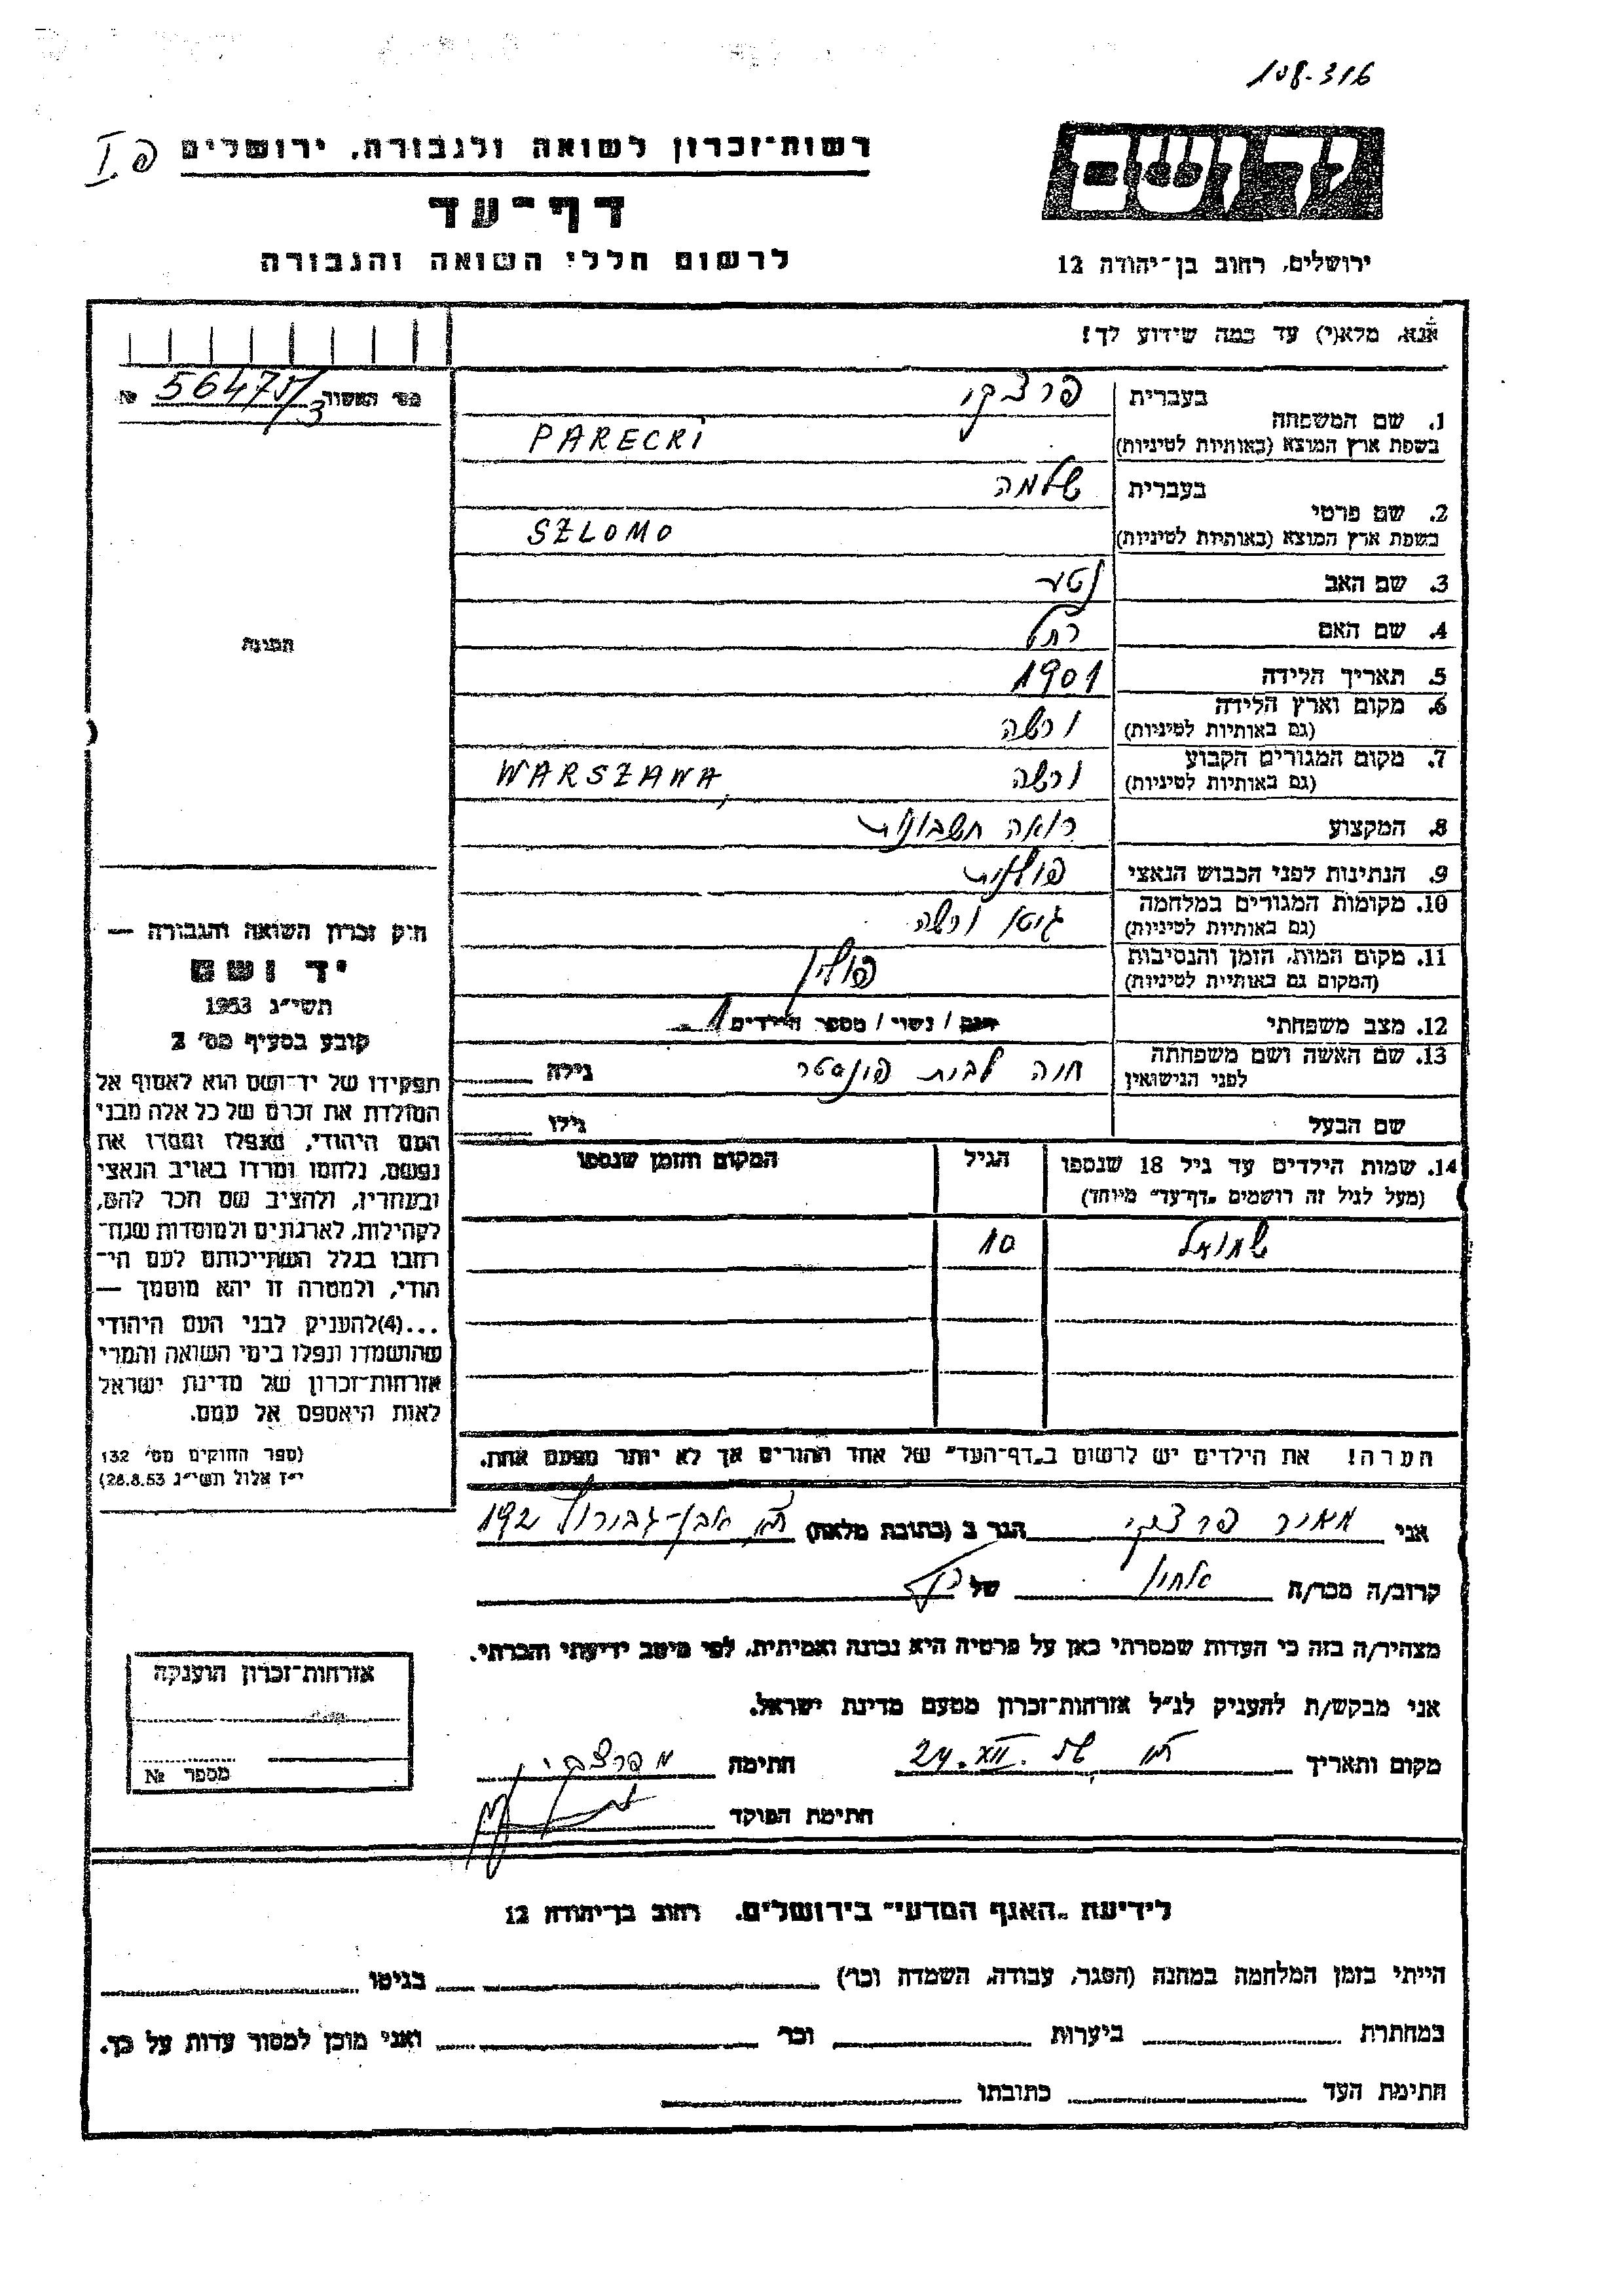 108-316
רשות־זכרון לשואה ולגבורה, ירושלים
פ I
דף־עד
לרשום חללי השואה והגבורה
יד ושם
ירושלים, רחוב בן־יהודה 12
אנא, מלא(י) עד כמה שידוע לך!
מס׳ האשור 56475/3 №
בעברית פרצקי
1. שם המשפחה
בשפת ארץ המוצא (באותיות לטיניות) PARECKI
בעברית שלמה
2. שם פרטי
בשפת ארץ המוצא (באותיות לטיניות) SZLOMO
3. שם האב נטע
4. שם האם רחל
5. תאריך הלידה 1901
6. מקום וארץ הלידה ורשה
(גם באותיות לטיניות)
7. מקום המגורים הקבוע ורשה WARSZAWA
(גם באותיות לטיניות)
8. המקצוע רואה חשבונות
9. הנתינות לפני הכבוש הנאצי פולנית
10. מקומות המגורים במלחמה גיטו ורשה
(גם באותיות לטיניות)
11. מקום המות, הזמן והנסיבות פולין
(המקום גם באותיות לטיניות)
12. מצב משפחתי רווק / נשוי / מספר הילדים 1
13. שם האשה ושם משפחתה חוה לבית גילה
לפני הנישואין
שם הבעל גילו
14. שמות הילדים עד גיל 18 שנספו הגיל המקום והזמן שנספו
(מעל לגיל זה רושמים „דף־עד״ מיוחד)
שמואל 10
הערה! את הילדים יש לרשום ב„דף־העד״ של אחד ההורים אך לא יותר מפעם אחת.
תמונה
חוק זכרון השואה והגבורה —
יד ושם
תשי״ג 1953
קובע בסעיף מס׳ 2
תפקידו של יד־ושם הוא לאסוף אל
המולדת את זכרם של כל אלה מבני
העם היהודי, שנפלו ומסרו את
נפשם, נלחמו ומרדו באויב הנאצי
ובעוזריו, ולהציב שם וזכר להם,
לקהילות, לארגונים ולמוסדות שנח־
רבו בגלל השתייכותם לעם הי־
הודי, ולמטרה זו יהא מוסמך —
...(4)להעניק לבני העם היהודי
שהושמדו ונפלו בימי השואה והמרי
אזרחות־זכרון של מדינת ישראל
לאות היאספם אל עמם.
(ספר החוקים מס׳ 132
י״ז אלול תשי״ג 28.8.53)
אני מאיר פרצקי הגר ב (כתובת מלאה) ת״א אבן-גבירול 192
קרוב/ה מכר/ה אחיין של
מצהיר/ה בזה כי העדות שמסרתי כאן על פרטיה היא נכונה ואמיתית, לפי מיטב ידיעתי והכרתי.
אני מבקש/ת להעניק לנ״ל אזרחות־זכרון מטעם מדינת ישראל.
מקום ותאריך ת״א 24.XII. חתימה מ פרצקי
חתימת הפוקד
אזרחות־זכרון הוענקה
מספר №
לידיעת „האגף המדעי״ בירושלים. רחוב בן־יהודה 12
הייתי בזמן המלחמה במחנה (הסגר, עבודה, השמדה וכר׳) בגיטו
במחתרת ביערות וכר׳ ואני מוכן למסור עדות על כך.
חתימת העד כתובתו